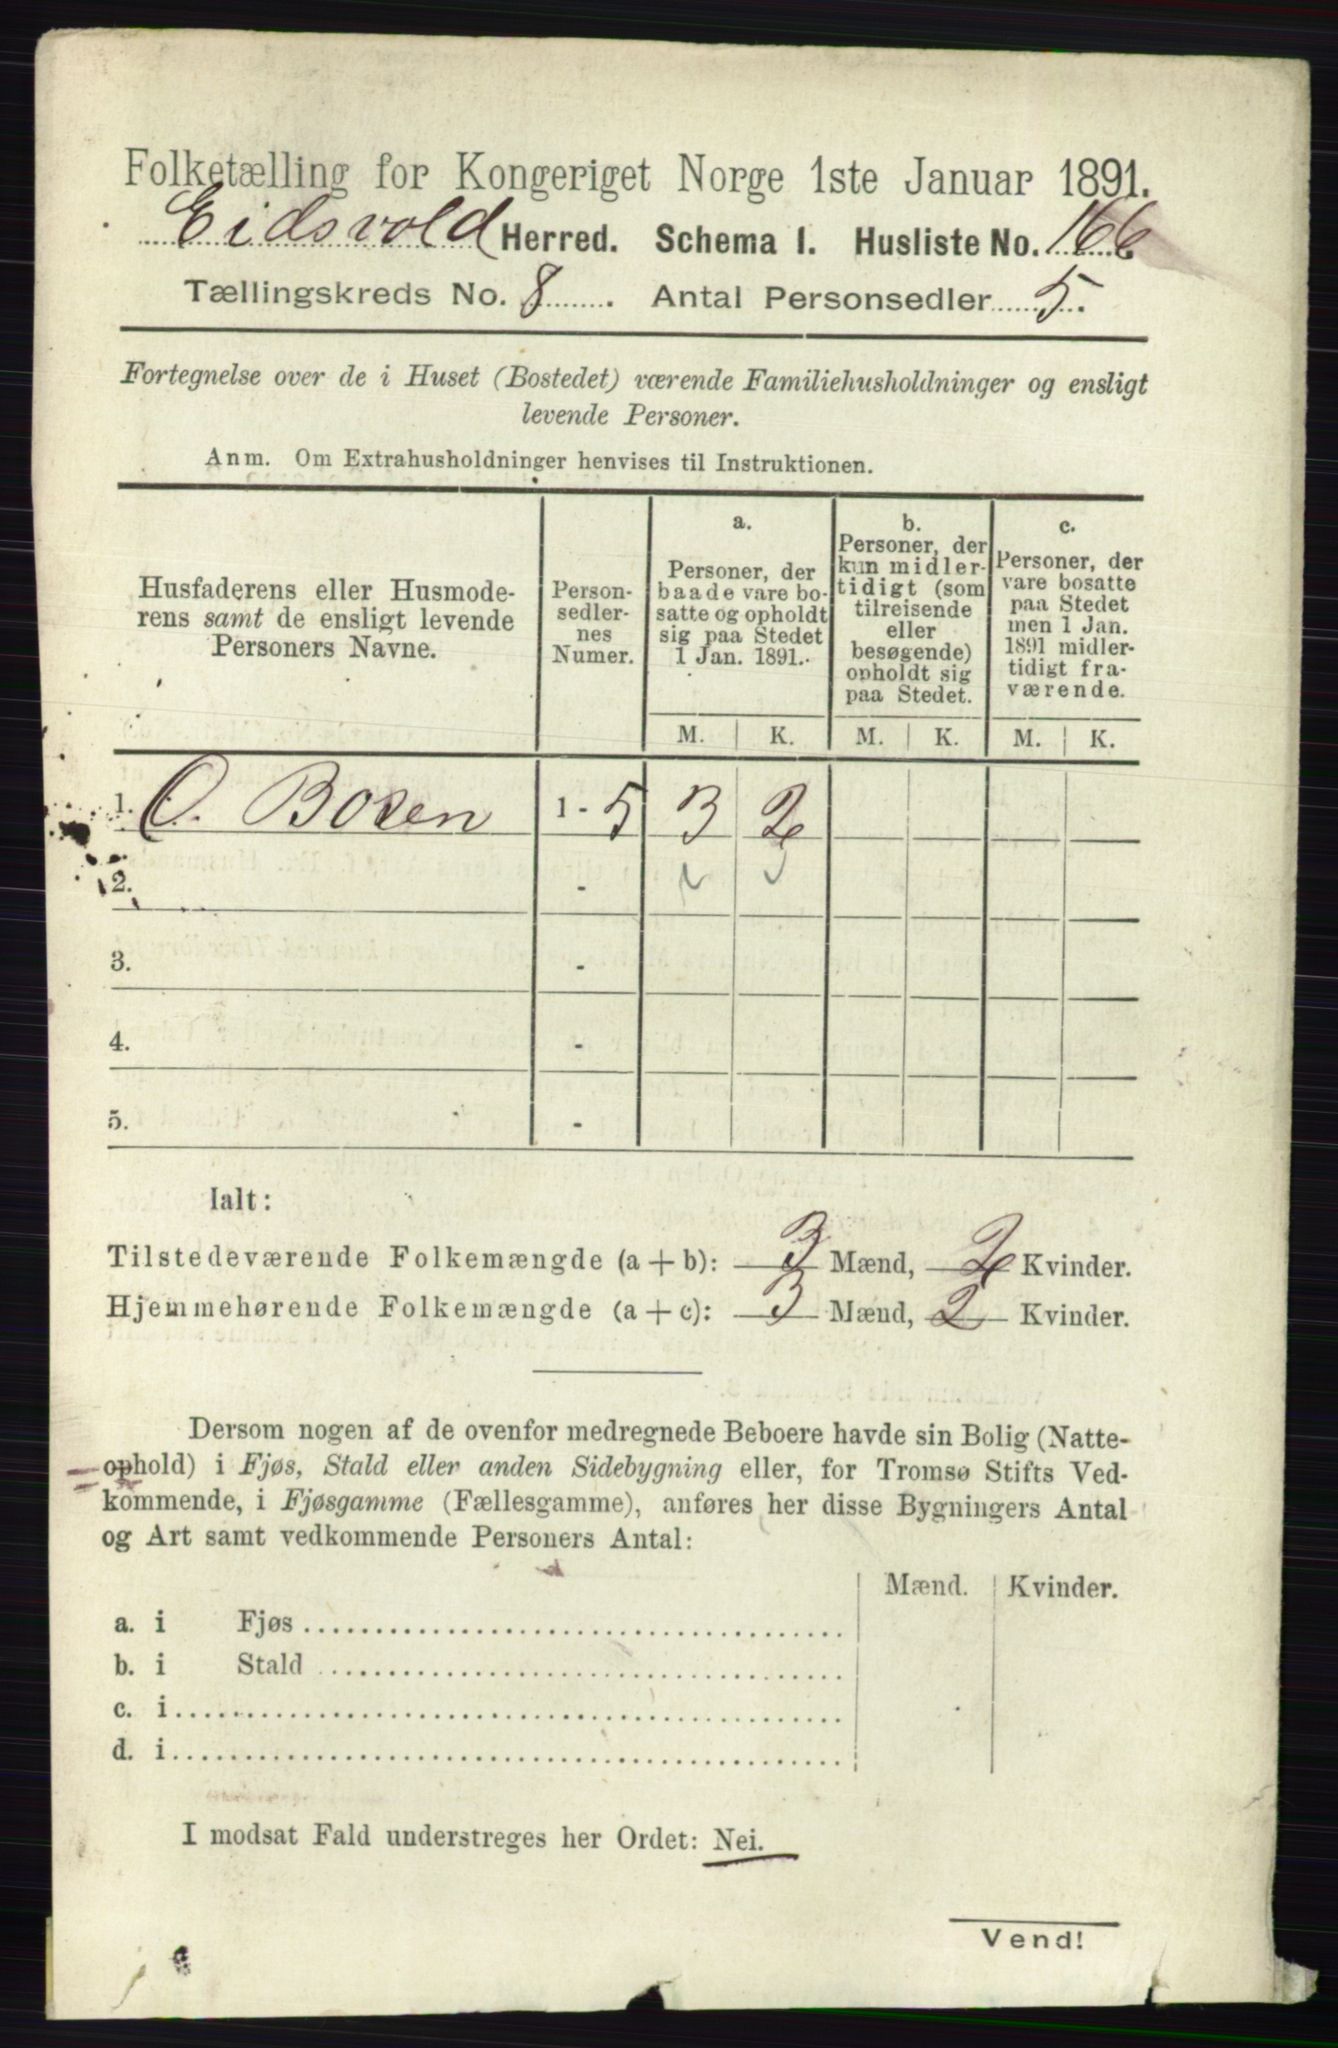 Folketælling for Kongeriget Norge 1ste Januar 1891.
Eidsvold Herred. Schema I. Husliste No. 166
Tællingskreds No. 8. Antal Personsedler 5.
Fortegnelse over de i Huset (Bostedet) værende Familiehusholdninger og ensligt
levende Personer.
Anm. Om Extrahusholdninger henvises til Instruktionen.
Husfaderens eller Husmode-
rens samt de ensligt levende
Personers Navne.
Person-
sedler-
nes
Numer.
a.
Personer, der
baade vare bo-
satte og opholdt
sig paa Stedet
1 Jan. 1891.
b.
Personer, der
kun midler-
tidigt (som
tilreisende
eller
besøgende)
opholdt sig
paa Stedet.
c.
Personer, der
vare bosatte
paa Stedet
men 1 Jan.
1891 midler-
tidigt fra-
værende.
M. K. M. K. M. K.
1. O. Boren 1 - 5 3 2
2. -
3. -
4. -
5. -
Ialt:
Tilstedeværende Folkemængde (a + b): 3 Mænd, 2 Kvinder.
Hjemmehørende Folkemængde (a + c): 3 Mænd, 2 Kvinder.
Dersom nogen af de ovenfor medregnede Beboere havde sin Bolig (Natte-
ophold) i Fjøs, Stald eller anden Sidebygning eller, for Tromsø Stifts Ved-
kommende, i Fjøsgamme (Fællesgamme), anføres her disse Bygningers Antal
og Art samt vedkommende Personers Antal:
Mænd. Kvinder.
a. i Fjøs
b. i Stald
c. i
d. i
I modsat Fald understreges her Ordet: Nei.
Vend!